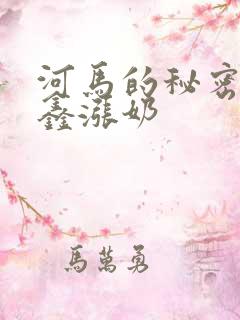 河馬的秘密
鑫漲奶
馬萬勇